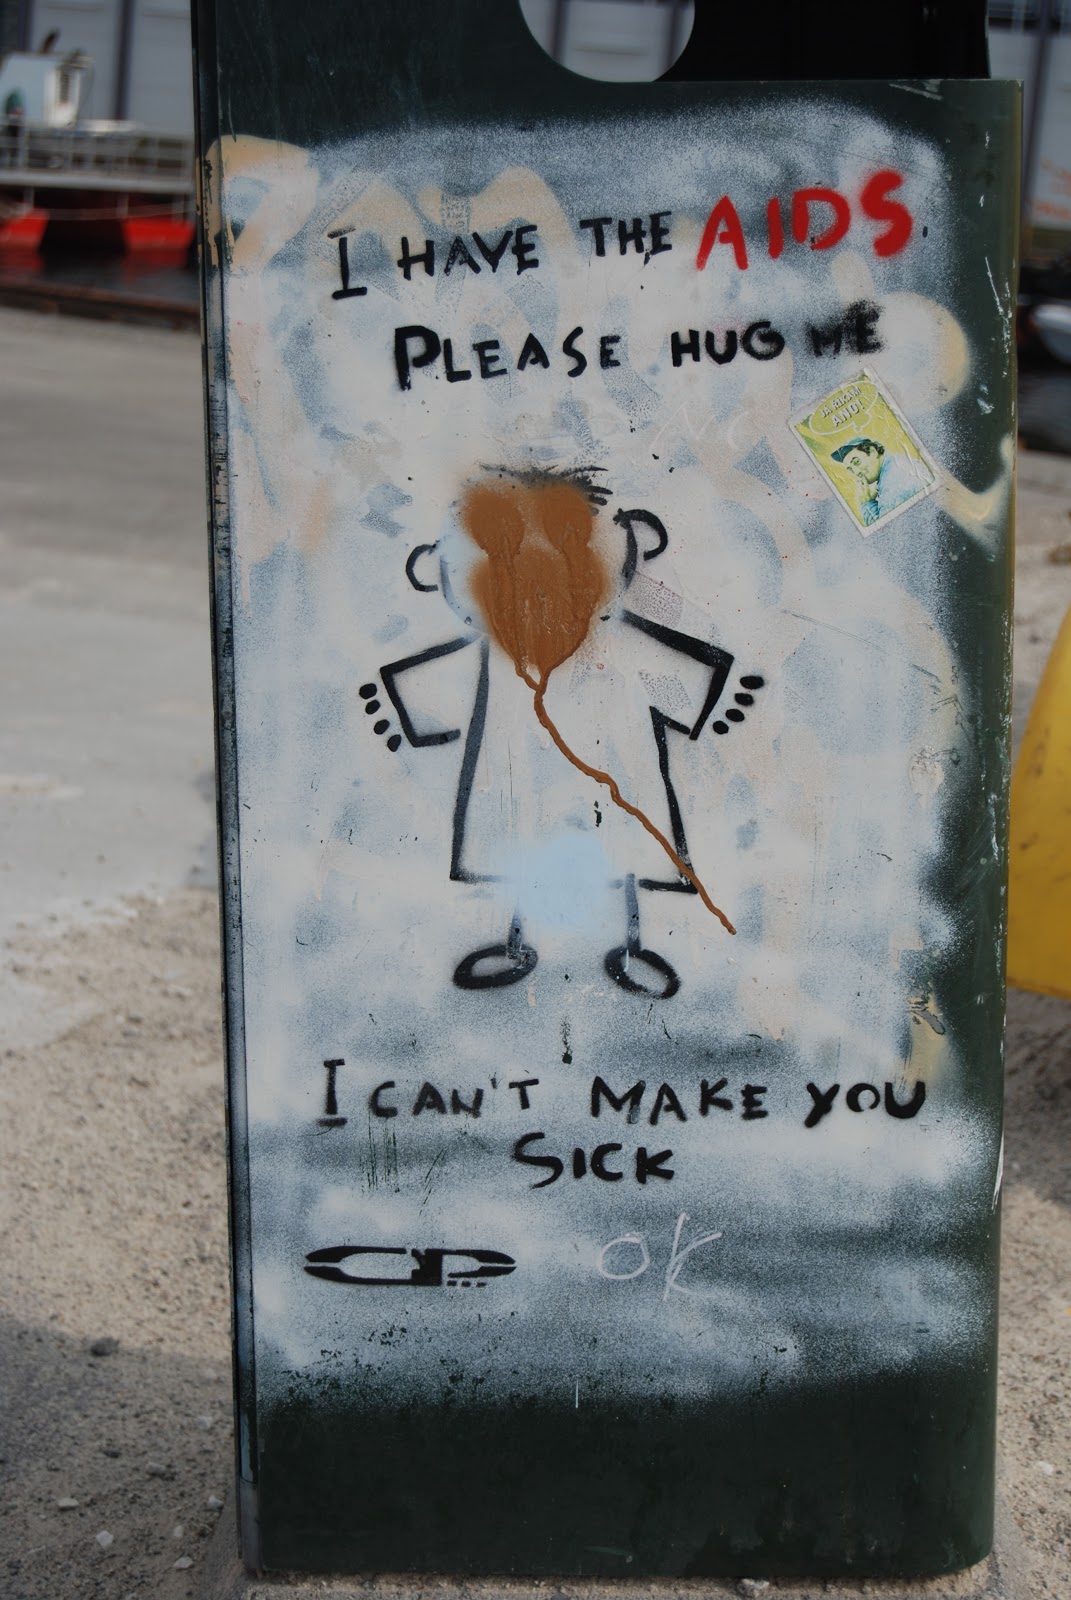 I HAVE THE AIDS.
PLEASE HUG ME
AND!
I CAN'T MAKE YOU
SICK
OK